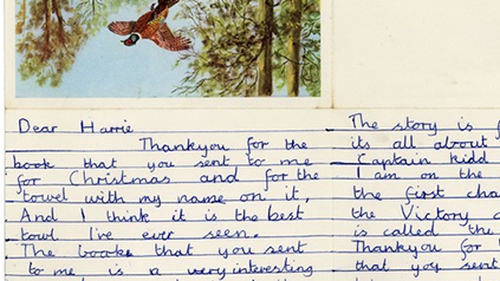 Dear Harrie
Thankyou for the
book that you sent to me
for Christmas and for the
towel with my name on it,
And I think it is the best
towl I've ever seen.
The booke that you sent
to me is a very interesting
The story is f
its all about
Captain kidd
I am on the
the first cha
the Victory
is called the
Thankyou for
that you sent